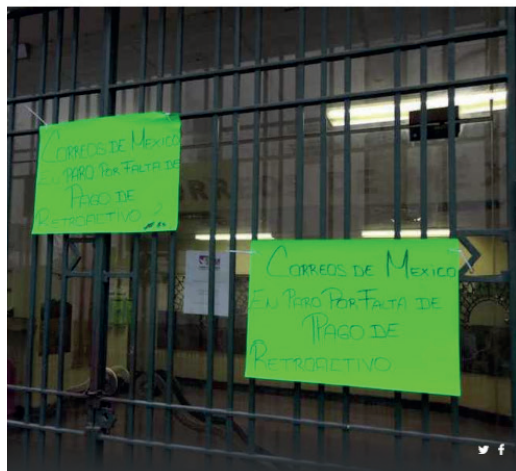 CORREOS DE MEXICO
EN PARO POR FALTA DE
PAGO DE
RETROACTIVO
CORREOS DE MEXICO
EN PARO POR FALTA DE
PAGO DE
RETROACTIVO